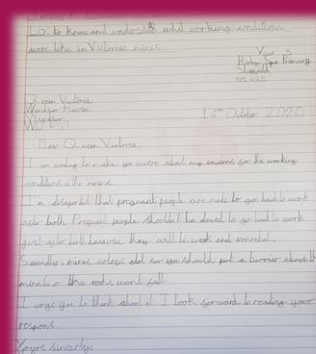 L.O. to know and understand what working conditions
were like in Victorian mines.
Year 5
Primary
Sheffield
Queen Victoria
Windsor
14th October 2020
Dear Queen Victoria,
I am writing to make you aware about my concerns for the working
conditions in the mines.
I'm disgusted that pregnant people are made to go back to work
after birth. Pregnant people shouldn't be alowed to go back to work
just after birth because they will be weak and
Secondly, mines colaps alot so you should put a above the
so the rocks wont fall.
I urge you to think about it. I look forward to reading your
respons.
Yours sincerly,